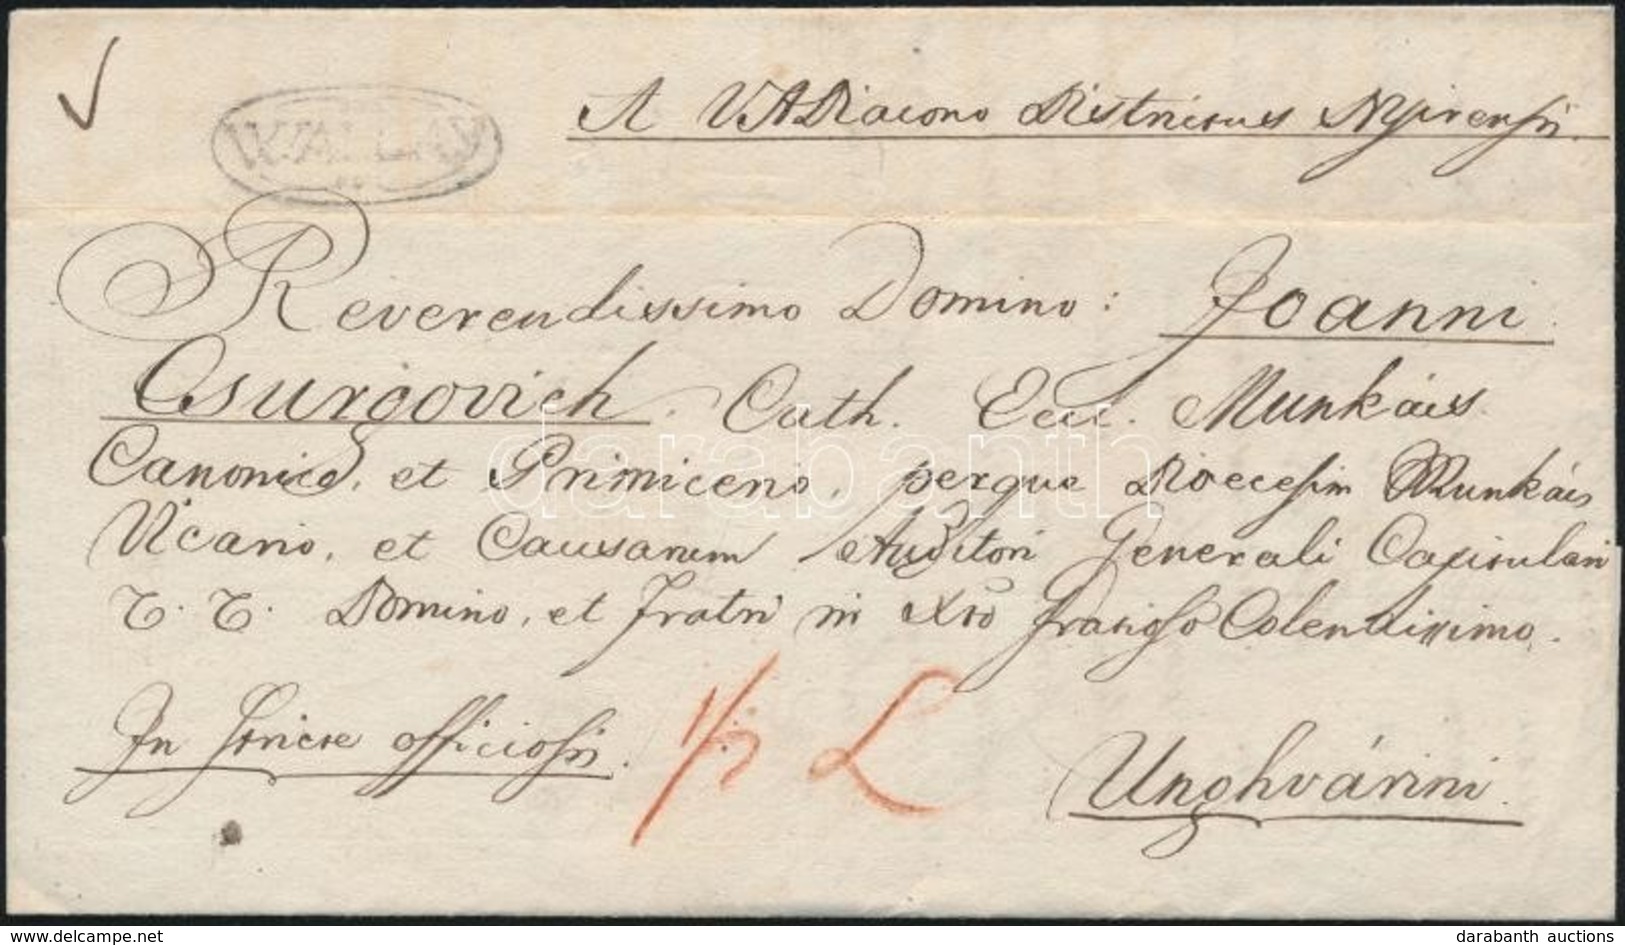 W. ALLAY
A VADiacono Districtus Nyirensis.
Reverendissimo Domino: Joanni
Csurgovich. Cath. Eccl. Munkács.
Canonico, et Primicerio, perque Dioecesim Munkács
Vicario, et Causarum Auditori Generali Capitulari
T. T. Domino, et Fratri in Xto Colendissimo.
In officiosis.
1/2 L
Unghvárini.
darabanth
delcampe.net
darabanth auctions